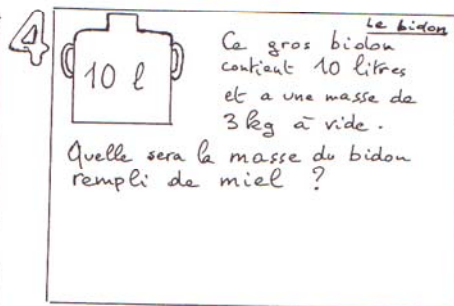 4
Le bidon
10 l
Ce gros bidon
contient 10 litres
et a une masse de
3 kg à vide.
Quelle sera la masse du bidon
rempli de miel ?